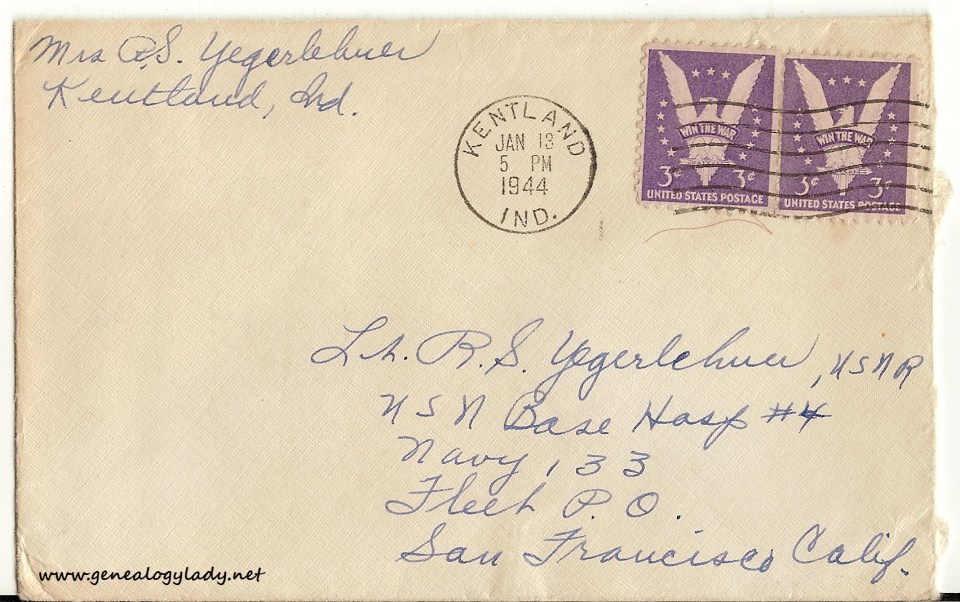 Mrs R.S. Yegerlehner
Kentland, Ind.
KENTLAND
JAN 13
5 PM
1944
IND.
WIN THE WAR
3¢ 3¢
UNITED STATES POSTAGE
WIN THE WAR
3¢ 3¢
UNITED STATES POSTAGE
Lt. R.S. Yegerlehner, USNR
USN Base Hosp #4
Navy, 133
Fleet P.O.
San Francisco Calif.
www.genealogylady.net